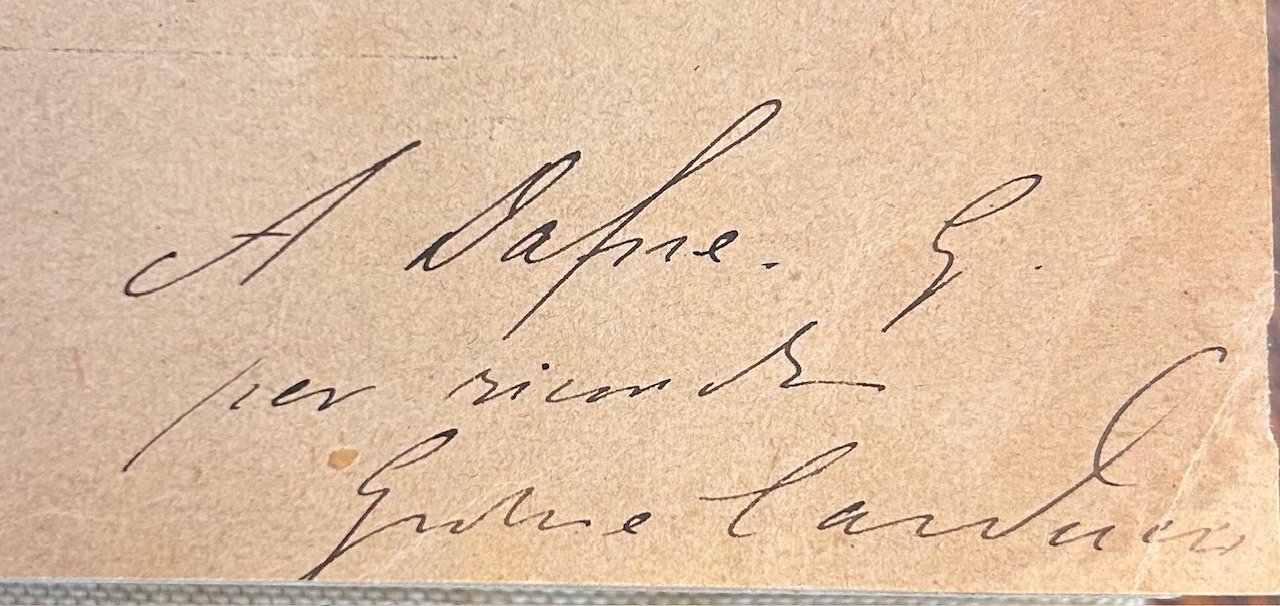 A Dafne. G.
per ricordo
Giosue Carducci